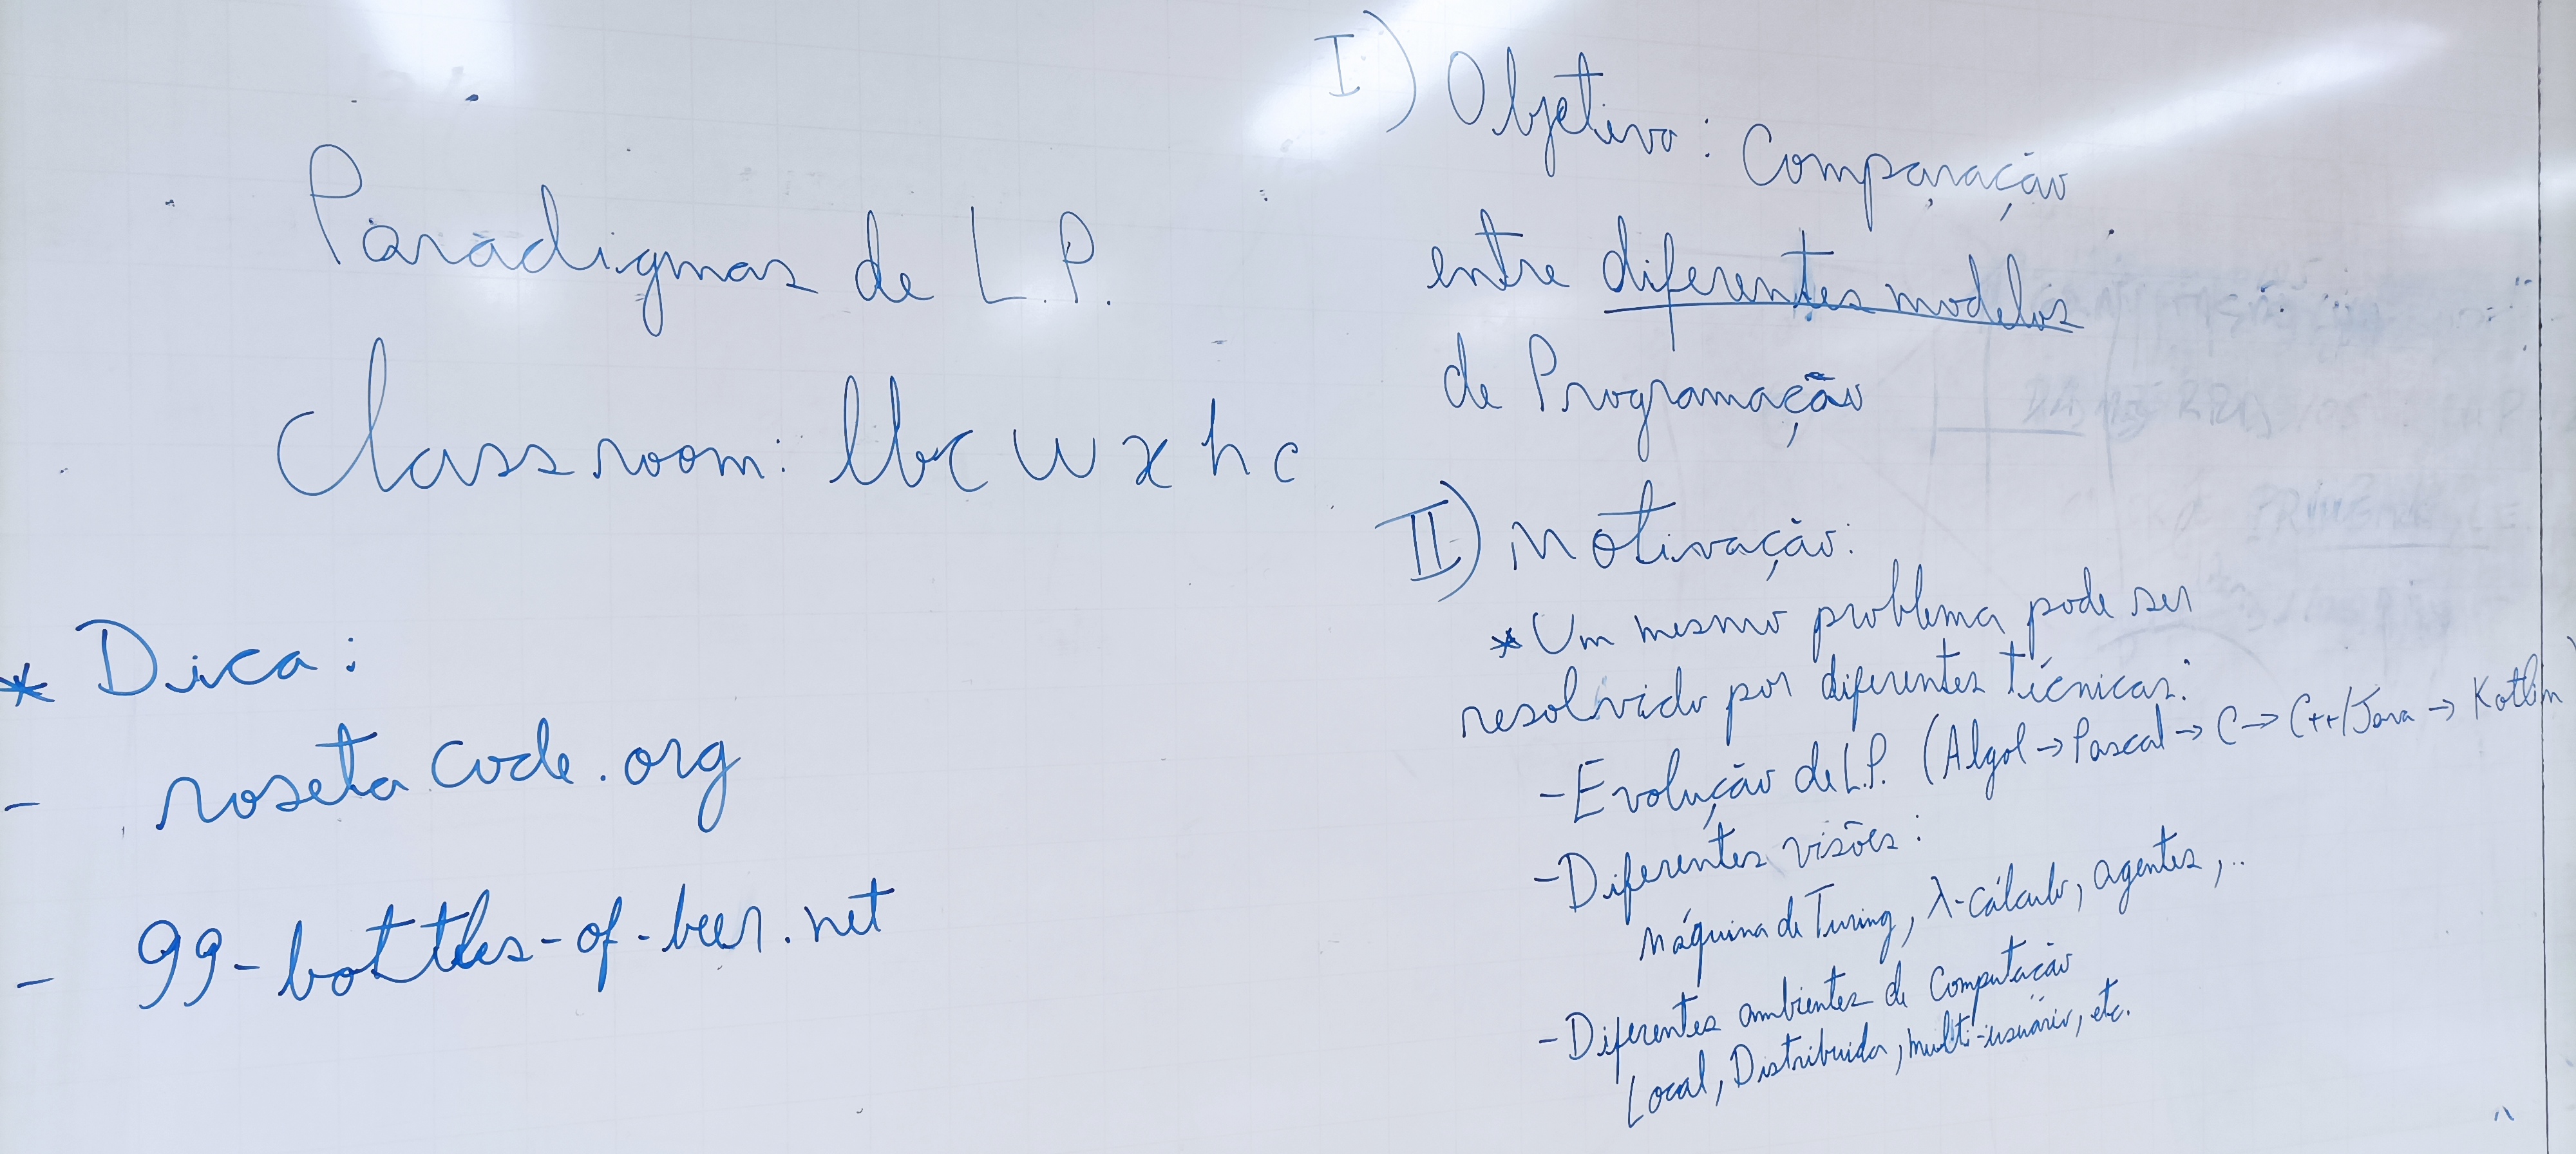 Paradigmas de L.P.
Classroom: lbcwxhc
* Dica:
- rosetacode.org
- 99-bottles-of-beer.net
I) Objetivo: Comparação
entre diferentes modelos
de Programação
II) Motivação:
* Um mesmo problema pode ser
resolvido por diferentes técnicas:
- Evolução de L.P. (Algol → Pascal → C → C++/Java → Kotlin)
- Diferentes visões:
Máquina de Turing, λ-cálculo, agentes,...
- Diferentes ambientes de Computação
Local, Distribuida, multi-usuário, etc.